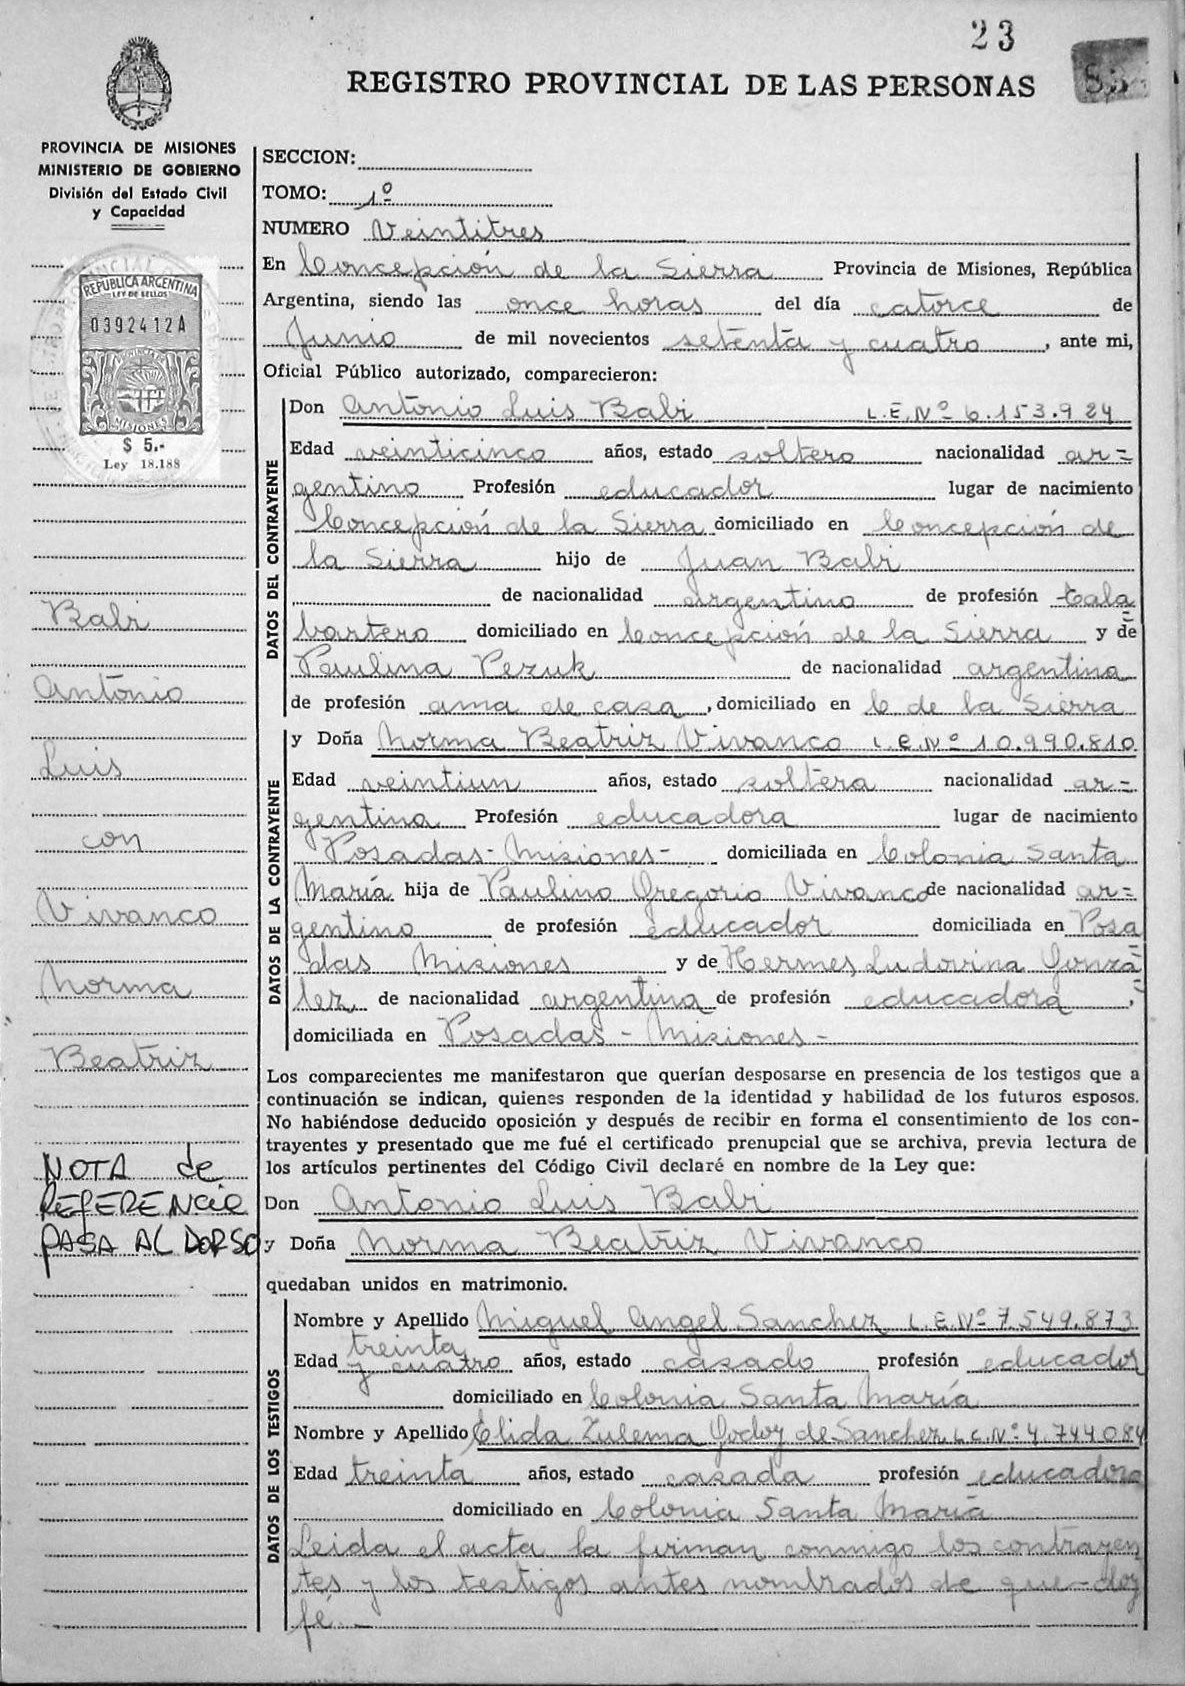 23
REGISTRO PROVINCIAL DE LAS PERSONAS
PROVINCIA DE MISIONES
MINISTERIO DE GOBIERNO
División del Estado Civil
y Capacidad
REPUBLICA ARGENTINA
LEY DE SELLOS
0392412A
MISIONES
$ 5.-
Ley 18.188
Babi
Antonio
Luis
con
Vivanco
Norma
Beatriz
NOTA de
REFERENCIA
PASA AL DORSO
SECCION:
TOMO: 1º
NUMERO Veintitres
En Concepción de la Sierra Provincia de Misiones, República
Argentina, siendo las once horas del día catorce de
Junio de mil novecientos setenta y cuatro, ante mi,
Oficial Público autorizado, comparecieron:
DATOS DEL CONTRAYENTE
Don Antonio Luis Babi L.E.Nº 6.153.924
Edad veinticinco años, estado soltero nacionalidad ar=
gentino Profesión educador lugar de nacimiento
Concepción de la Sierra domiciliado en Concepción de
la Sierra hijo de Juan Babi
de nacionalidad argentino de profesión tala=
bartero domiciliado en Concepción de la Sierra y de
Paulina Pezuk de nacionalidad argentina
de profesión ama de casa, domiciliado en C de la Sierra
DATOS DE LA CONTRAYENTE
y Doña Norma Beatriz Vivanco L.C.Nº 10.990.810
Edad veintiun años, estado soltera nacionalidad ar=
gentina Profesión educadora lugar de nacimiento
Posadas - Misiones - domiciliada en Colonia Santa
María hija de Paulino Gregorio Vivanco de nacionalidad ar=
gentino de profesión educador domiciliada en Posa=
das Misiones y de Hermes Ludovina Gonzá=
lez de nacionalidad argentina de profesión educadora,
domiciliada en Posadas - Misiones -
Los comparecientes me manifestaron que querían desposarse en presencia de los testigos que a
continuación se indican, quienes responden de la identidad y habilidad de los futuros esposos.
No habiéndose deducido oposición y después de recibir en forma el consentimiento de los con-
trayentes y presentado que me fué el certificado prenupcial que se archiva, previa lectura de
los artículos pertinentes del Código Civil declaré en nombre de la Ley que:
Don Antonio Luis Babi
y Doña Norma Beatriz Vivanco
quedaban unidos en matrimonio.
DATOS DE LOS TESTIGOS
Nombre y Apellido Miguel Angel Sanchez L.E.Nº 7.549.873
Edad treinta y cuatro años, estado casado profesión educador
domiciliado en Colonia Santa María
Nombre y Apellido Elida Zulema Godoy de Sanchez L.C.Nº 4.744.084
Edad treinta años, estado casada profesión educadora
domiciliado en Colonia Santa María
Leida el acta la firman conmigo los contrayen
tes y los testigos antes nombrados de que doy
fé. -